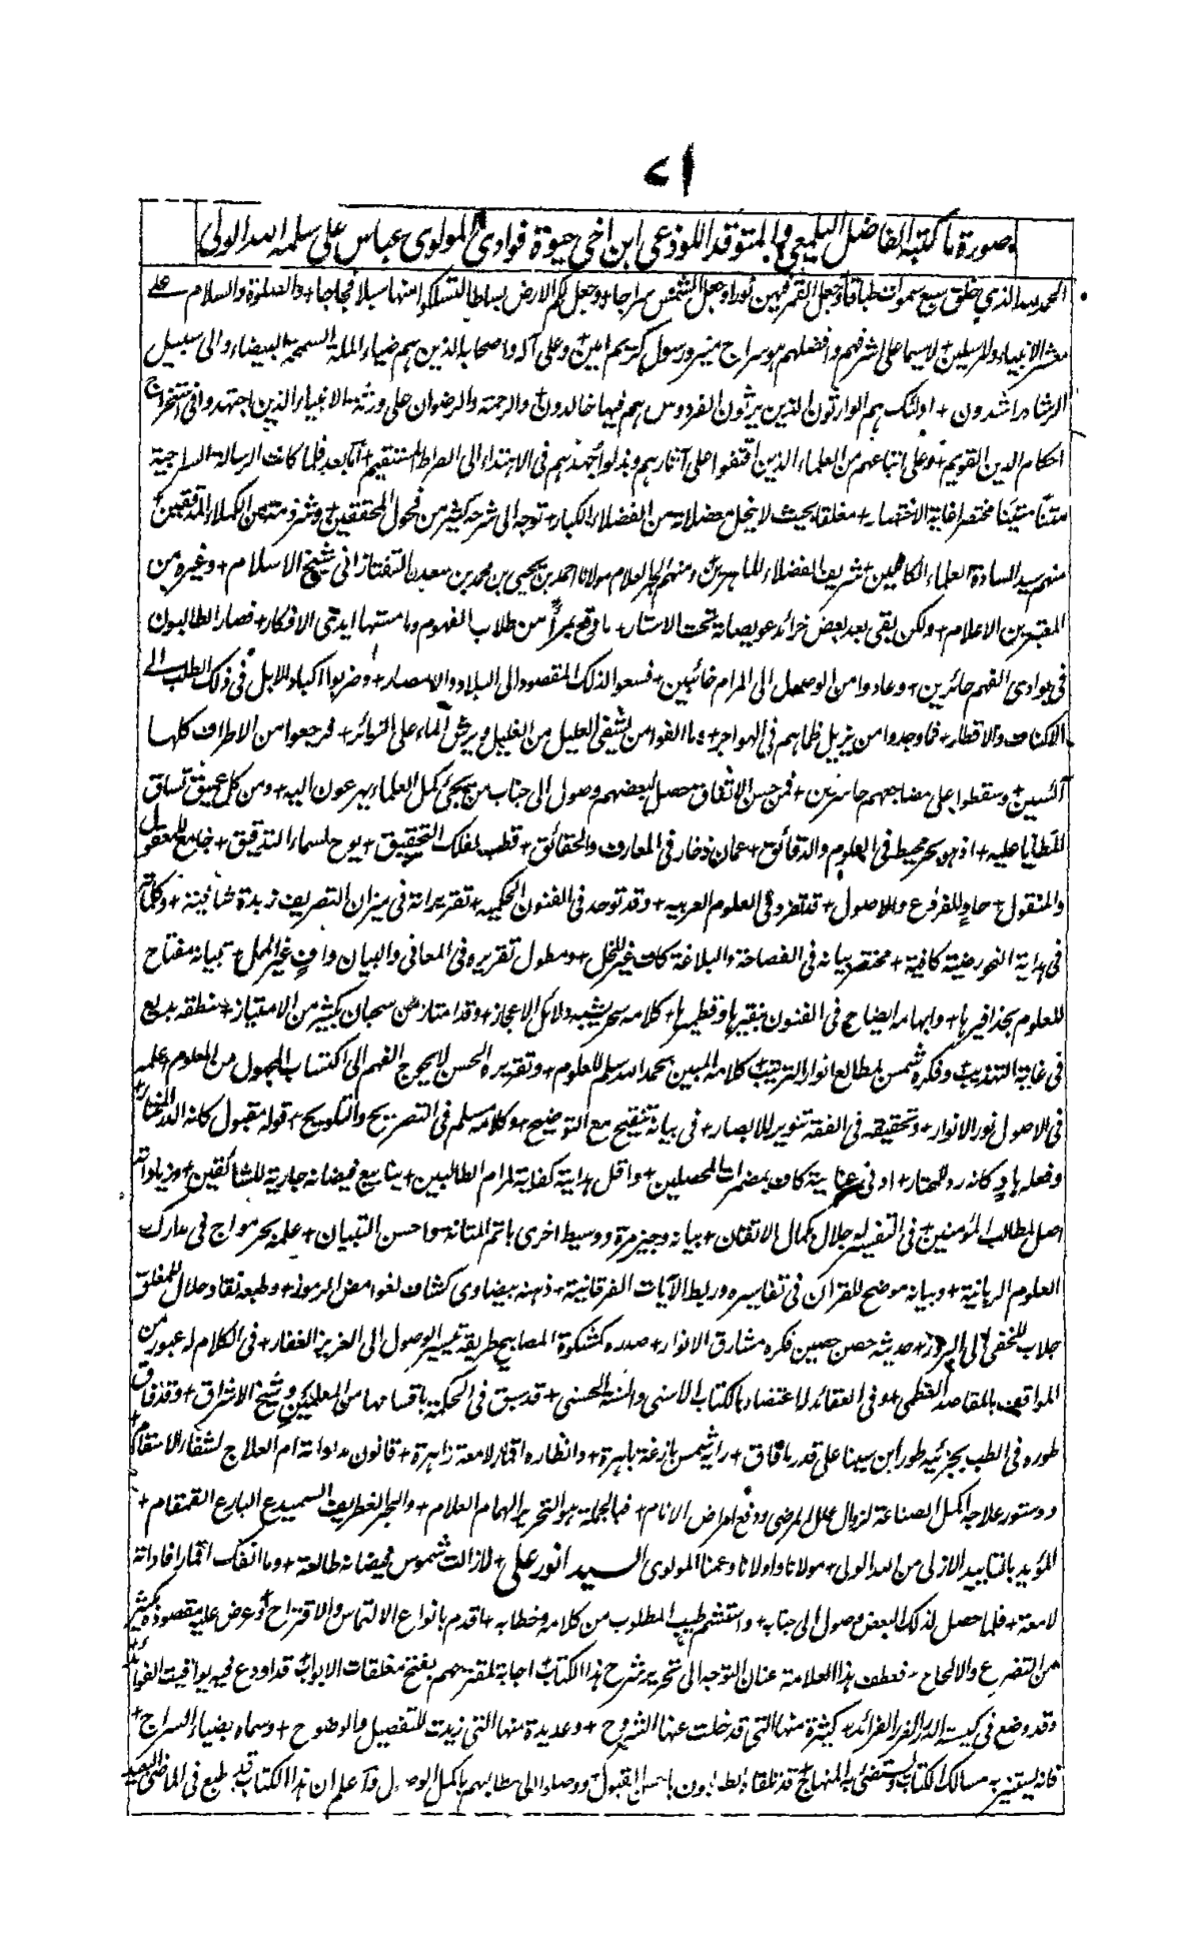 ٧١
صورة ما كتبه الفاضل اليلمعي والمتوقد اللوذعي ابن اخي حيوة فوادي المولوي عباس على سلمه الله الولى
الحمد لله الذي خلق سبع سموات طباقا وجعل القمر فيهن نورا وجعل الشمس سراجا + وجعل لكم الارض بساطا لتسلكوا منها سبلا فجاجا + والصلوة والسلام على
معشر الانبياء والمرسلين + لاسيما على اشرفهم وافضلهم هو سراج منير ورسول كريم امين + وعلى آله واصحابه الذين هم ضياء الملة السمحة البيضاء والى سبيل
الرشاد راشدون + اولئك هم الوارثون الذين يرثون الفردوس هم فيها خالدون + والرحمة والرضوان على ورثة الانبياء الذين اجتهدوا في استخراج
احكام الدين القويم + وعلى اتباعهم من العلماء الذين اقتفوا على آثارهم وبذلوا جهدهم في الاهتداء الى الصراط المستقيم + اما بعد فلما كانت الرسالة السراجية
متنا متينا مختصرا غاية الاختصار + مغلقا بحيث لا ينحل معضلاته من الفضلاء الكبار + توجه الى شرحه كثير من فحول المحققين + وشرذمة من الكملاء المدققين +
منهم سيد السادة العلماء الكاملين + شريف الفضلاء الماهرين + ومنهم الحبر العلام مولانا احمد بن يحيى بن محمد بن سعد الدين التفتازاني شيخ الاسلام + وغيره من
المتبحرين الاعلام + ولكن بقى بعد بعض خرائد عويصاته تحت الاستار + ما رفع من طلاب الفهوم وما مستها ايدى الافكار + فصار الطالبون
في بوادى الفهم حائرين + وعادوا من الوصول الى المرام خائبين + فسعوا لذلك المقصود الى البلاد والامصار + وضربوا اكباد الابل في ذلك الطلب الى
الاكناف والاقطار + فما وجدوا من يزيل ظمأهم في الهواجر + وما الفوا من يشفى العليل من الغليل ويرش الماء على الزوائر + فرجعوا من الاطراف كلها
آئسين + وسقطوا على مضاجعهم حاسرين + فمن حسن الاتفاق حصل لبعضهم وصول الى جناب من يجئ كمل العلماء يهرعون اليه + ومن كل عميق تساق
المطايا عليه + اذ هو بحر محيط في العلوم والدقائق + عمان ذخار في المعارف والحقائق + قطب لفلك التحقيق + يوح لسماء التدقيق + جامع للمعقول
والمنقول + حاو للفروع والاصول + قد تفرد في العلوم العربيه + وقد توحد في الفنون الحكميه + تقريراته في ميزان التصريف زبدة شافية + وكلماته
في هداية النحو رضية كافية + مختصر بيانه في الفصاحة والبلاغة كاف غير المخل + ومطول تقريره في المعاني والبيان واف غير الممل + تبيانه مفتاح
للعلوم بحذافيرها + وابهامه ايضاح في الفنون بنقيرها وقطميرها + كلامه سحر يشبه دلائل الاعجاز + وقد امتاز من سحبان بكثير من الامتياز + منطقه بديع
في غاية التهذيب + وفكره شمس لمطالع انوار الترتيب + كلامه المبين بحمد الله سلم للعلوم + وتقريره الحسن لا يحوج الفهم الى اكتساب المجهول من المعلوم + علمه
في الاصول نور الانوار + وتحقيقه في الفقه تنوير للابصار + في بيانه تنقيح مع التوضيح + وكلامه مسلم في التصريح والتلويح + قوله مقبول كانه الدر المختار
وفعله هاد كانه رد المحتار + ادنى عناية كاف بمضمرات المحصلين + واقل هداية كفاية لمرام الطالبين + ينابيع فيضانه جارية للشائقين + وزياداته
اصل لمطالب المؤمنين + في التفسير له جلال بكمال الاتقان + بيانه وجيز مرة ووسيط اخرى باتم المتانة واحسن التبيان + علمه بحر مواج في مدارك
العلوم الربانية + وبيانه موضح للقرآن في تفاسيره وربط الآيات الفرقانية + ذهنه بيضاوى كشاف لغوامض الرموز + وطبعه نقاد حلال للمغلق
جلاب للخفى الى البروز + حديثه حصن حصين فكره مشارق الانوار + صدره كمشكوة المصابيح طريقه تيسير الوصول الى العزيز الغفار + في الكلام له عبور من
المواقف بالمقاصد العظمى + وفي العقائد له اعتضاد بالكتاب الاسنى والسنة الحسنى + قد سبق في الحكمة باقسامها من المعلمين وشيخ الاشراق + وقد فاق
طوره في الطب بجزئيه طور ابن سينا على قدر ما فاق + رايه شمس بازغة باهرة + وانظاره اقمار لامعة زاهرة + قانون مداواته ام العلاج لشفاء الاسقام +
ودستور علاجه اكمل الصناعة لزوال علل المرضى ودفع امراض الانام + فبالجملة هو النحرير الهمام العلام + والبحر الغطريف السميدع البارع القمقام +
المؤيد بالتاييد الازلى من الله الولى + مولانا واولانا وعمنا المولوى السيد انور على + لازالت شموس فيضانه طالعة + وما انفك اقمار افاداته
لامعة + فلما حصل لذلك البعض وصول الى جنابه + واستشم طيب المطلوب من كلامه وخطابه + اقدم بانواع الالتماس والاقتراح + وعرض عليه مقصوده بكثير
من التضرع والالحاح + فعطف هذا العلامة عنان التوجه الى تحرير شرح هذا الكتاب + اجابة لمقترحهم بفتح مغلقات الابواب + قد اودع فيه يواقيت الفوائد +
وقد وضع في كيسه الدرر الغرر الفرائد + كثيرة منها التي قد خلت عنها الشروح + وعديدة منها التي زيدت للتفصيل والوضوح + وسماه بضياء السراج +
فانه يستنير به مسالك الكتاب ويستضئ به المنهاج + قد تلقاه الطالبون باحسن القبول + ووصلوا الى مطالبهم باكمل الوصول + واعلم ان هذا الكتاب قد طبع في الماضى البعيد